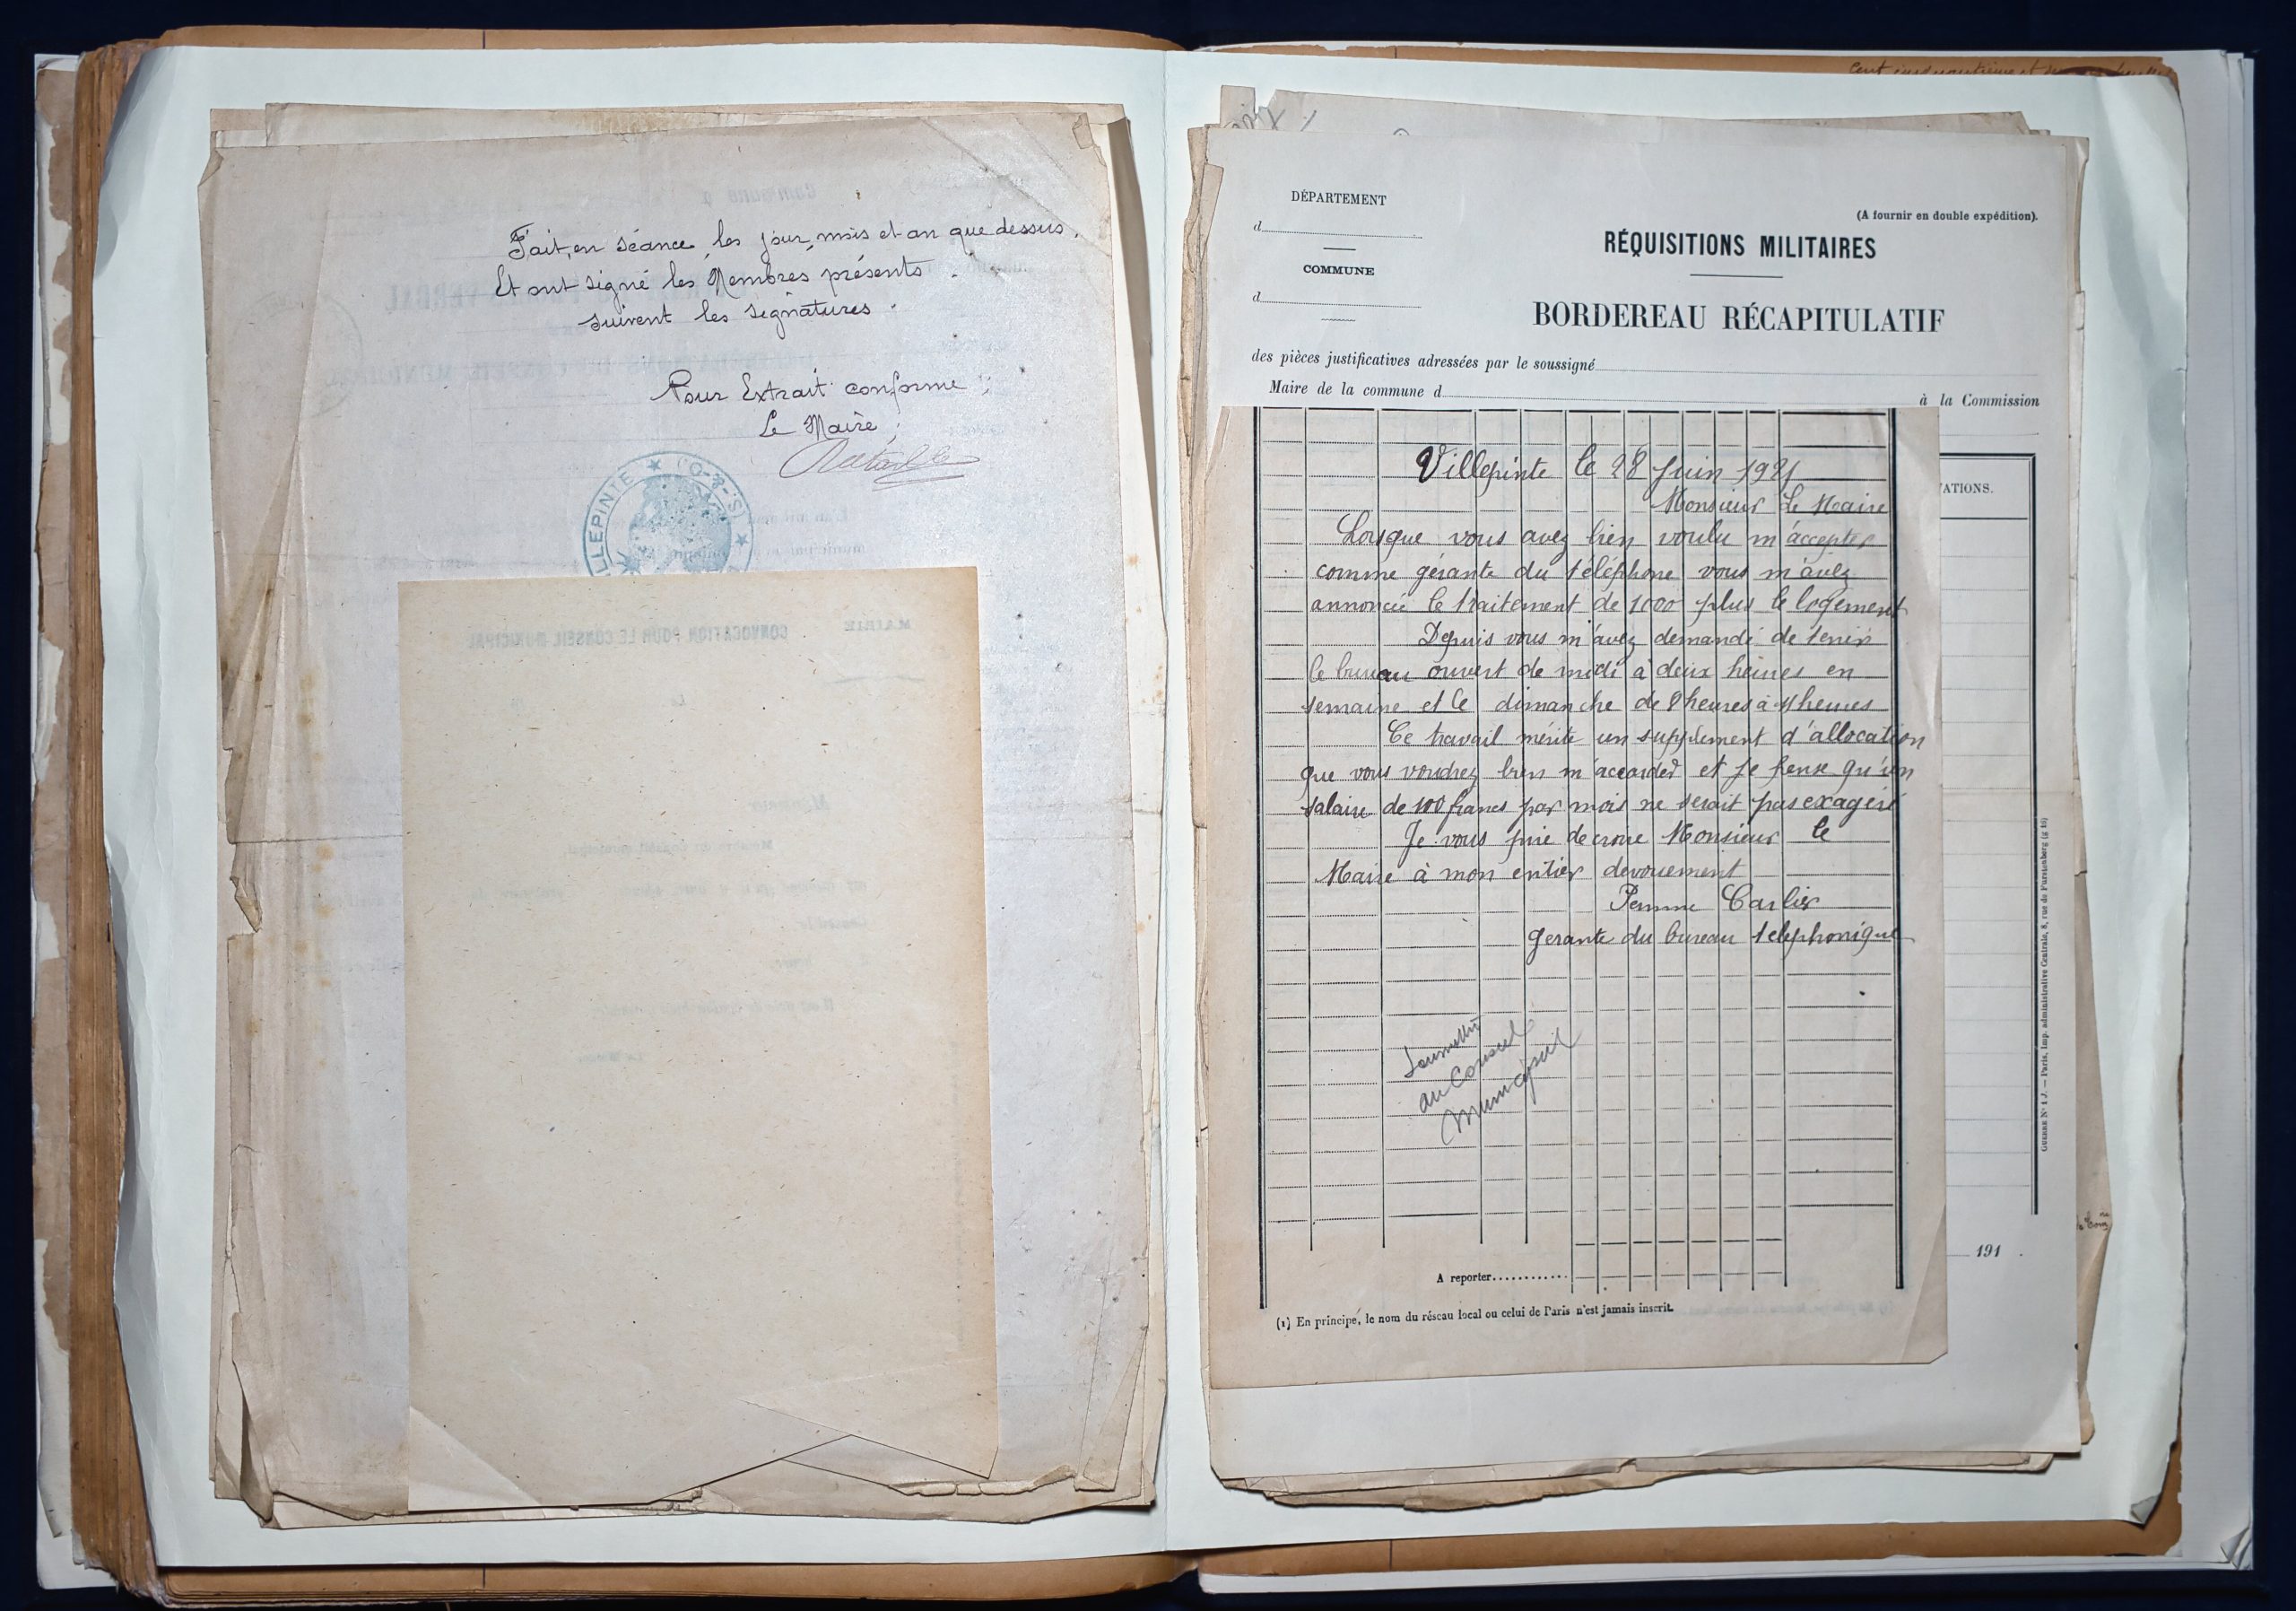 Fait, en séance, les jour, mois et an que dessus.
Et ont signé les Membres présents.
suivent les signatures.
Pour Extrait conforme :
Le Maire,
LLEPINTE ★ (S.-&-O.) ★
MAIRIE
CONVOCATION POUR LE CONSEIL MUNICIPAL
DÉPARTEMENT
d
COMMUNE
d
(A fournir en double expédition).
RÉQUISITIONS MILITAIRES
BORDEREAU RÉCAPITULATIF
des pièces justificatives adressées par le soussigné
Maire de la commune d
à la Commission
Villepinte le 28 Juin 1921
Monsieur Le Maire
Lorsque vous avez bien voulu m'accepter
comme gérante du téléphone vous m'avez
annoncé le traitement de 1000 plus le logement
Depuis vous m'avez demandé de tenir
le bureau ouvert de midi à deux heures en
semaine et le dimanche de 8 heures à 11 heures
Ce travail mérite un supplement d'allocation
que vous voudrez bien m'accorder et je pense qu'un
salaire de 100 francs par mois ne serait pas exagéré
Je vous prie de croire Monsieur le
Maire à mon entier devouement
Femme Carlier
gerante du bureau telephonique
Soumettre
au Conseil
Municipal
A reporter
(1) En principe, le nom du réseau local ou celui de Paris n'est jamais inscrit.
ATIONS.
191 .
GUERRE N° 1 J. — Paris, Imp. administrative Centrale, 8, rue de Furstenberg